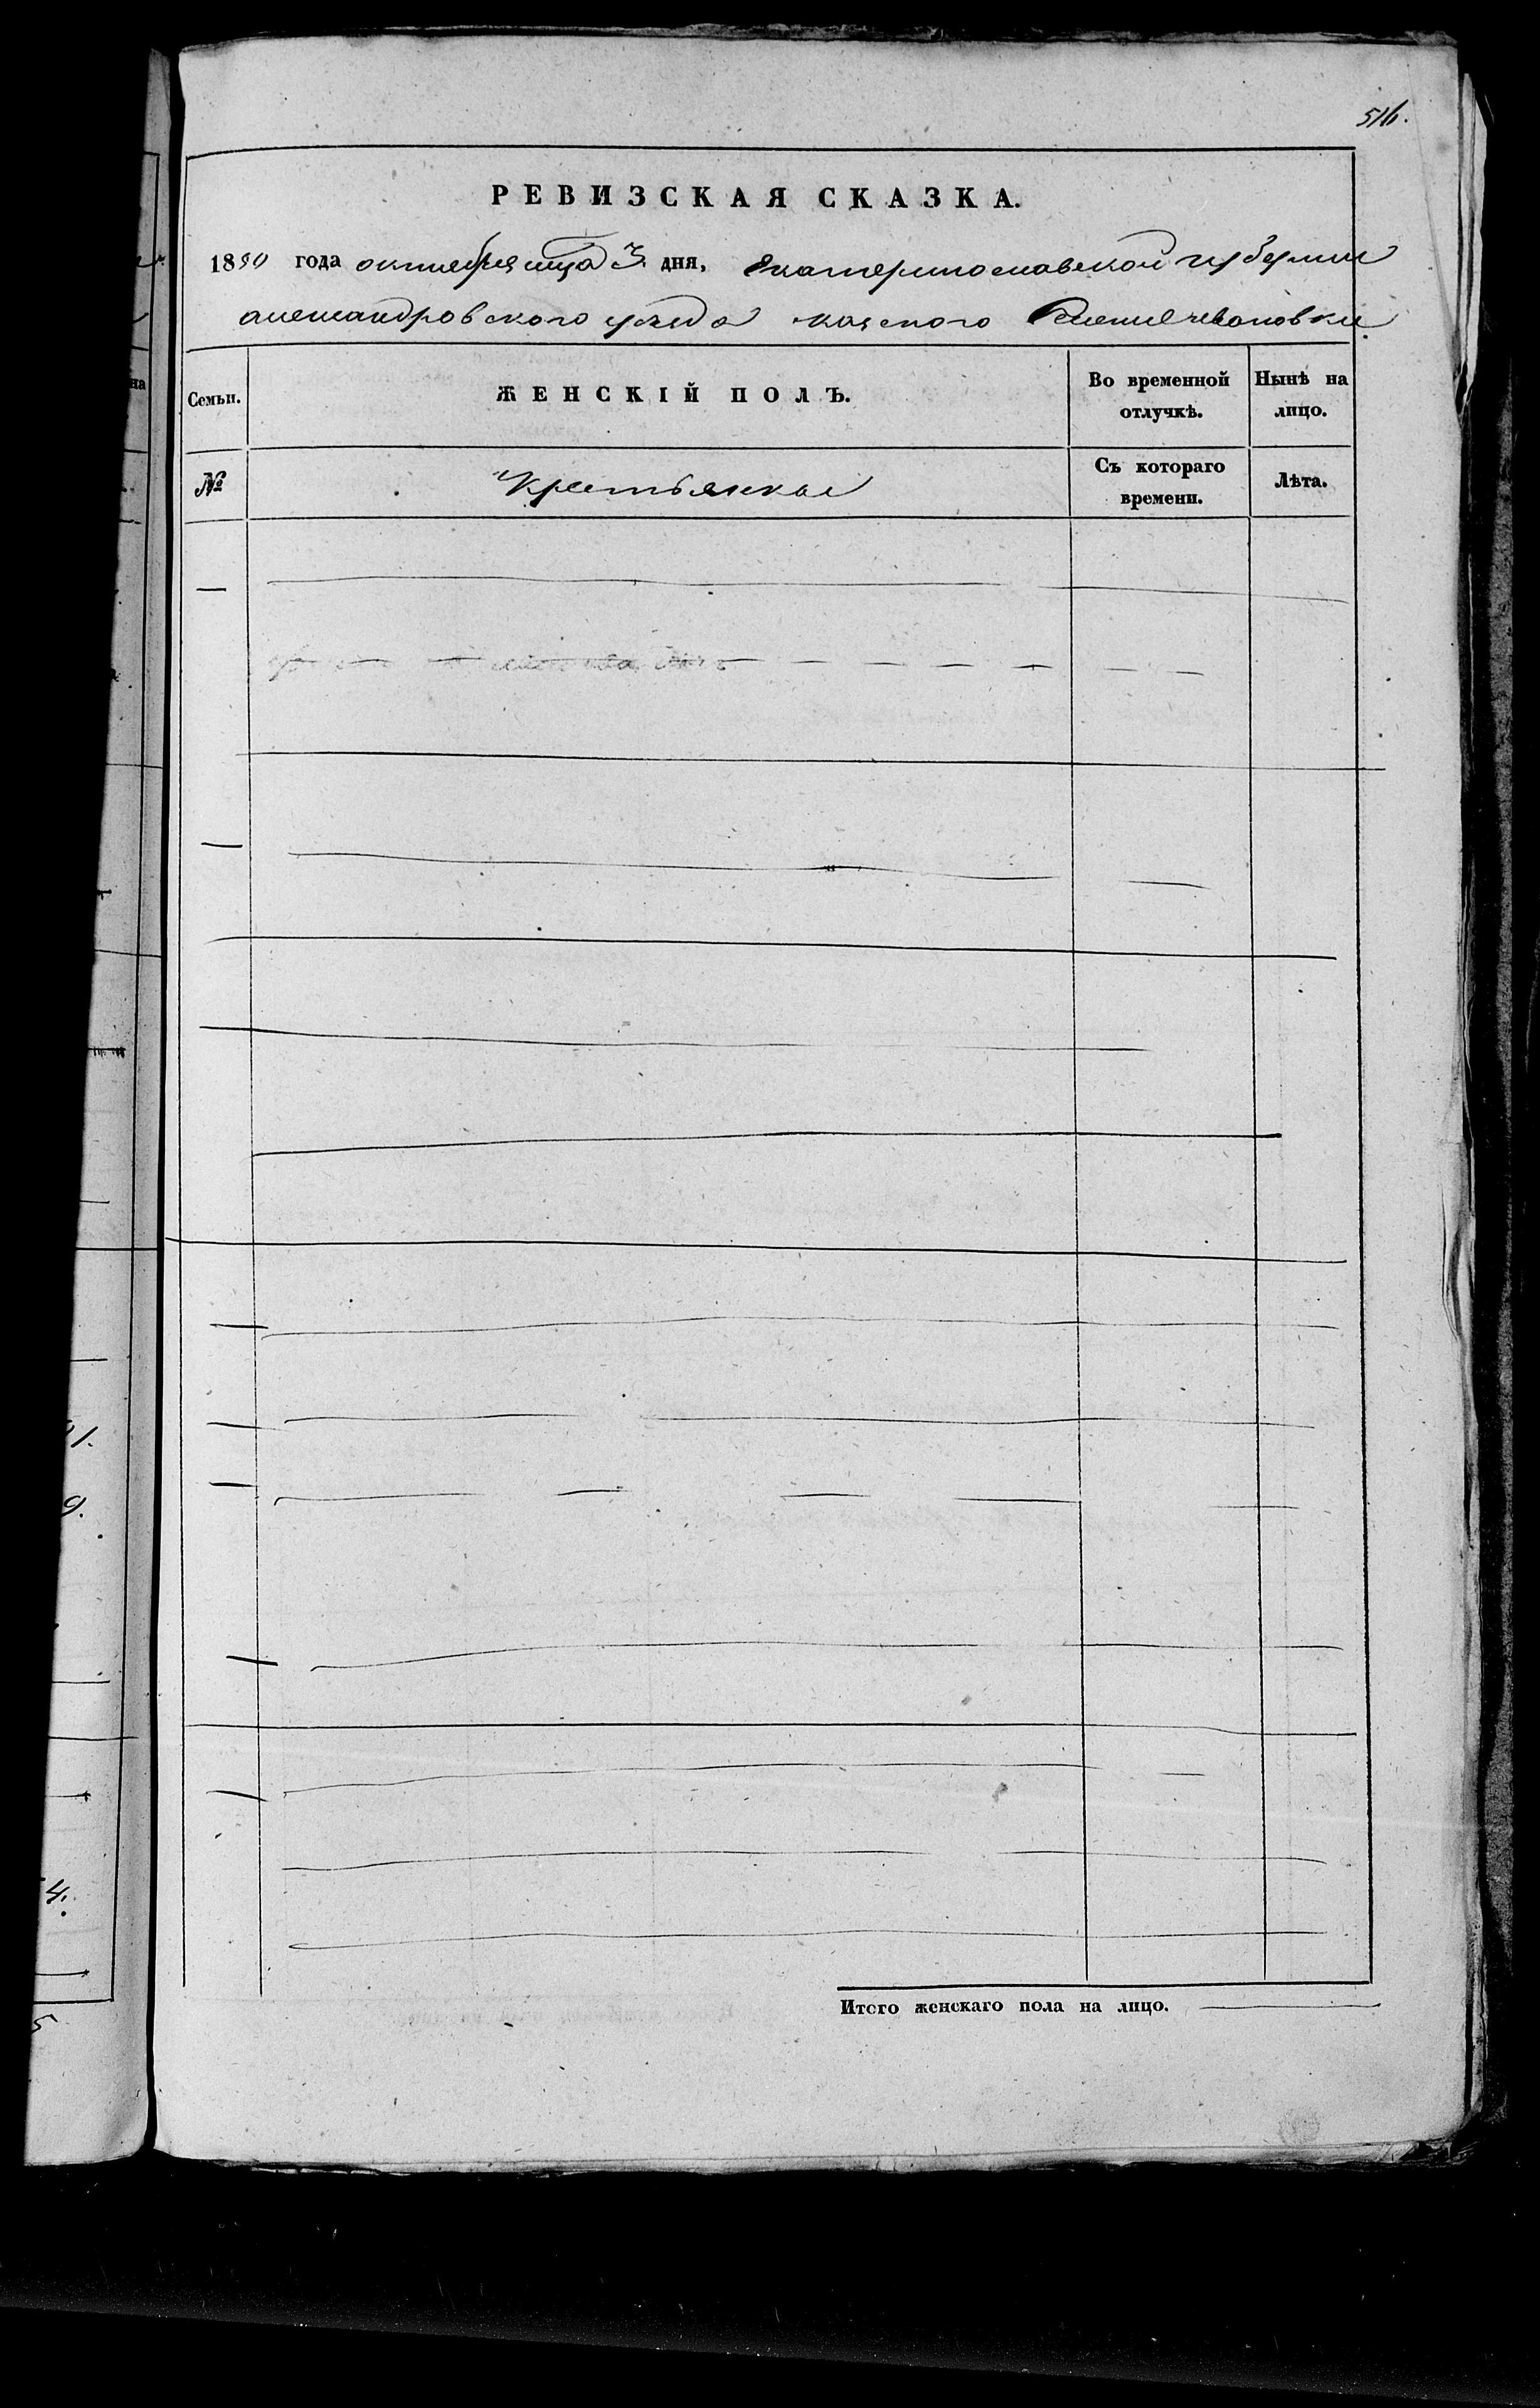 516.
РЕВИЗСКАЯ СКАЗКА.
1850 года октября мца 3 дня, Екатеринославской губернии
александровского уезда
Семьи. ЖЕНСКІЙ ПОЛЪ. Во временной отлучкѣ. Нынѣ на лицо.
№ Крестьянки Съ котораго времени. Лѣта.
Итого женскаго пола на лицо.
на
4.